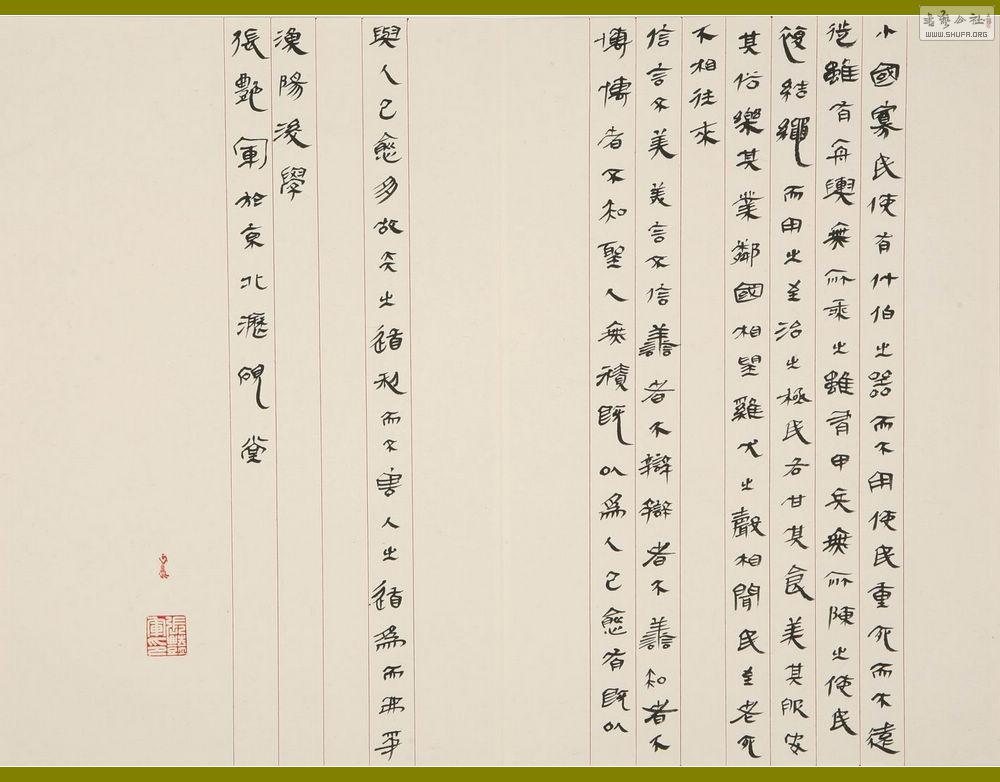 小國寡民使有什伯之器而不用使民重死而不遠
徙雖有舟輿無所乘之雖有甲兵無所陳之使民
復結繩而用之至治之極民各甘其食美其服安
其俗樂其業鄰國相望雞犬之聲相聞民至老死
不相往來
信言不美美言不信善者不辯辯者不善知者不
博博者不知聖人無積既以爲人己愈有既以
與人己愈多故天之道利而不害人之道爲而弗爭
漁陽後學
張艷軍於京北瀝硯堂
張艷軍印
WWW.SHUFA.ORG